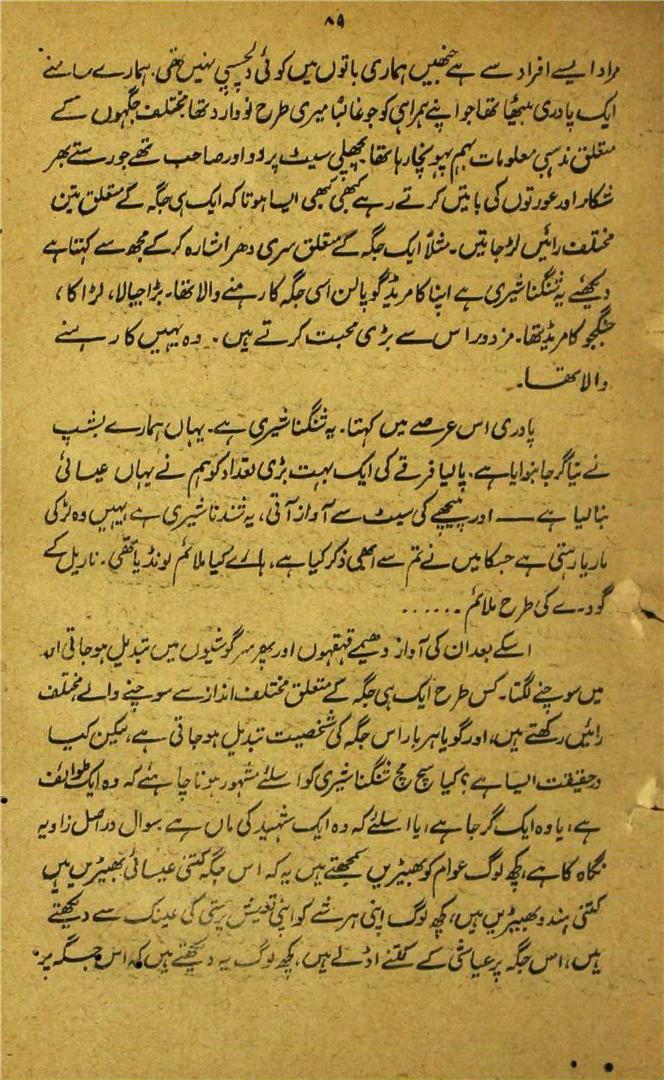 ۸۹
مراد ایسے افراد سے ہے جنھیں ہماری باتوں میں کوئی دلچسپی نہیں تھی۔ ہمارے سامنے
ایک پادری بیٹھا تھا جو اپنے ہمراہی کو جو غالباً میری طرح نو وارد تھا مختلف جگہوں کے
متعلق مذہبی معلومات بہم پہونچا رہا تھا پچھلی سیٹ پر دو اور صاحب تھے جو رستے بھر
شکار اور عورتوں کی باتیں کرتے رہے کبھی کبھی ایسا ہوتا کہ ایک ہی جگہ کے متعلق تین
مختلف رائیں لڑ جاتیں۔ مثلاً ایک جگہ کے متعلق سری دھر اشارہ کر کے مجھ سے کہتا ہے
دیکھئے یہ تنگناشیری ہے اپنا کامریڈ گوپالن اسی جگہ کا رہنے والا تھا۔ بڑا جیالا، لڑاکا،
جنگجو کامریڈ تھا۔ مزدور اس سے بڑی محبت کرتے ہیں۔ وہ یہیں کا رہنے
والا تھا۔
پادری اس عرصے میں کہتا۔ یہ تنگناشیری ہے۔ یہاں ہمارے بشپ
نے نیا گرجا بنوایا ہے۔ پالیا فرقے کی ایک بہت بڑی تعداد کو ہم نے یہاں عیسائی
بنا لیا ہے — اور پیچھے کی سیٹ سے آواز آتی، یہ تنندناشیری ہے، یہیں وہ لڑکی
ماریا رہتی ہے جسکا میں نے تم سے ابھی ذکر کیا ہے، ہائے کیا ملائم لونڈیا تھی۔ ناریل کے
گودے کی طرح ملائم ......
اسکے بعد ان کی آواز دھیمے قہقہوں اور پھر سرگوشیوں میں تبدیل ہو جاتی اور
میں سوچنے لگتا۔ کس طرح ایک ہی جگہ کے متعلق مختلف انداز سے سوچنے والے مختلف
رائیں رکھتے ہیں، اور گویا ہر بار اس جگہ کی شخصیت تبدیل ہو جاتی ہے، لیکن کیا
درحقیقت ایسا ہے؟ کیا سچ مچ تنگناشیری کو اسلئے مشہور ہونا چاہئے کہ وہ ایک طوائف
ہے، یا وہ ایک گرجا ہے، یا اسلئے کہ وہ ایک شہید کی ماں ہے سوال دراصل زاویہ
نگاہ کا ہے، کچھ لوگ عوام کو بھیڑیں سمجھتے ہیں یہ کہ اس جگہ کتنی عیسائی بھیڑیں ہیں
کتنی ہندو بھیڑیں ہیں، کچھ لوگ اپنی ہر شے کو اپنی تعیش پرستی کی عینک سے دیکھتے
ہیں، اس جگہ پر عیاشی کے کتنے اڈے ہیں، کچھ لوگ یہ دیکھتے ہیں کہ اس جگہ پر